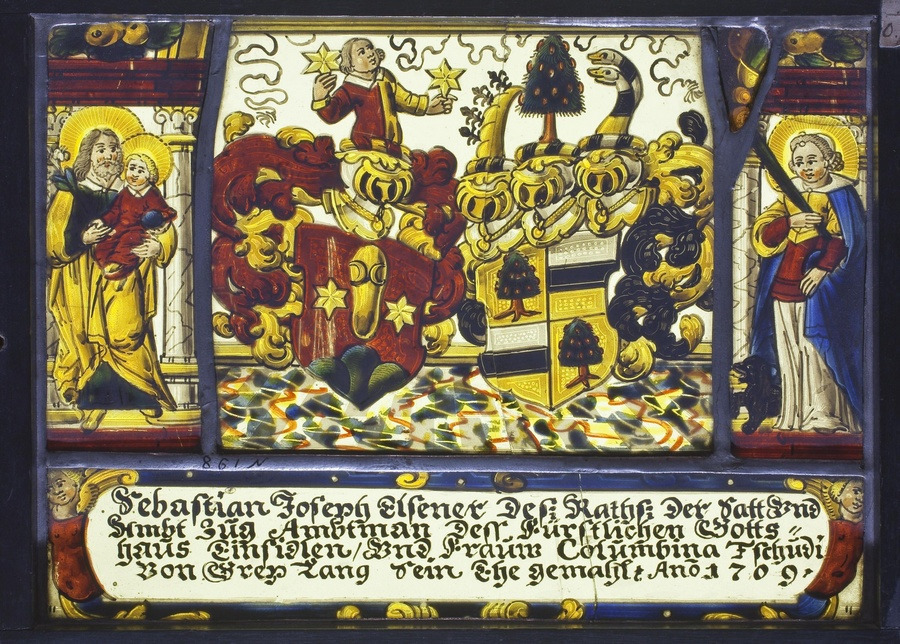 Sebastian Joseph Elsener Des: Raths: Der Statt Vnd
Ambt Zug Ambtman Dess Fürstlichen Gotts=
haus Einsidlen/ Vnd Frauw Columbina Tschudi
Von Grep Lang Sein Ehe gemahl: Anō. 1709.